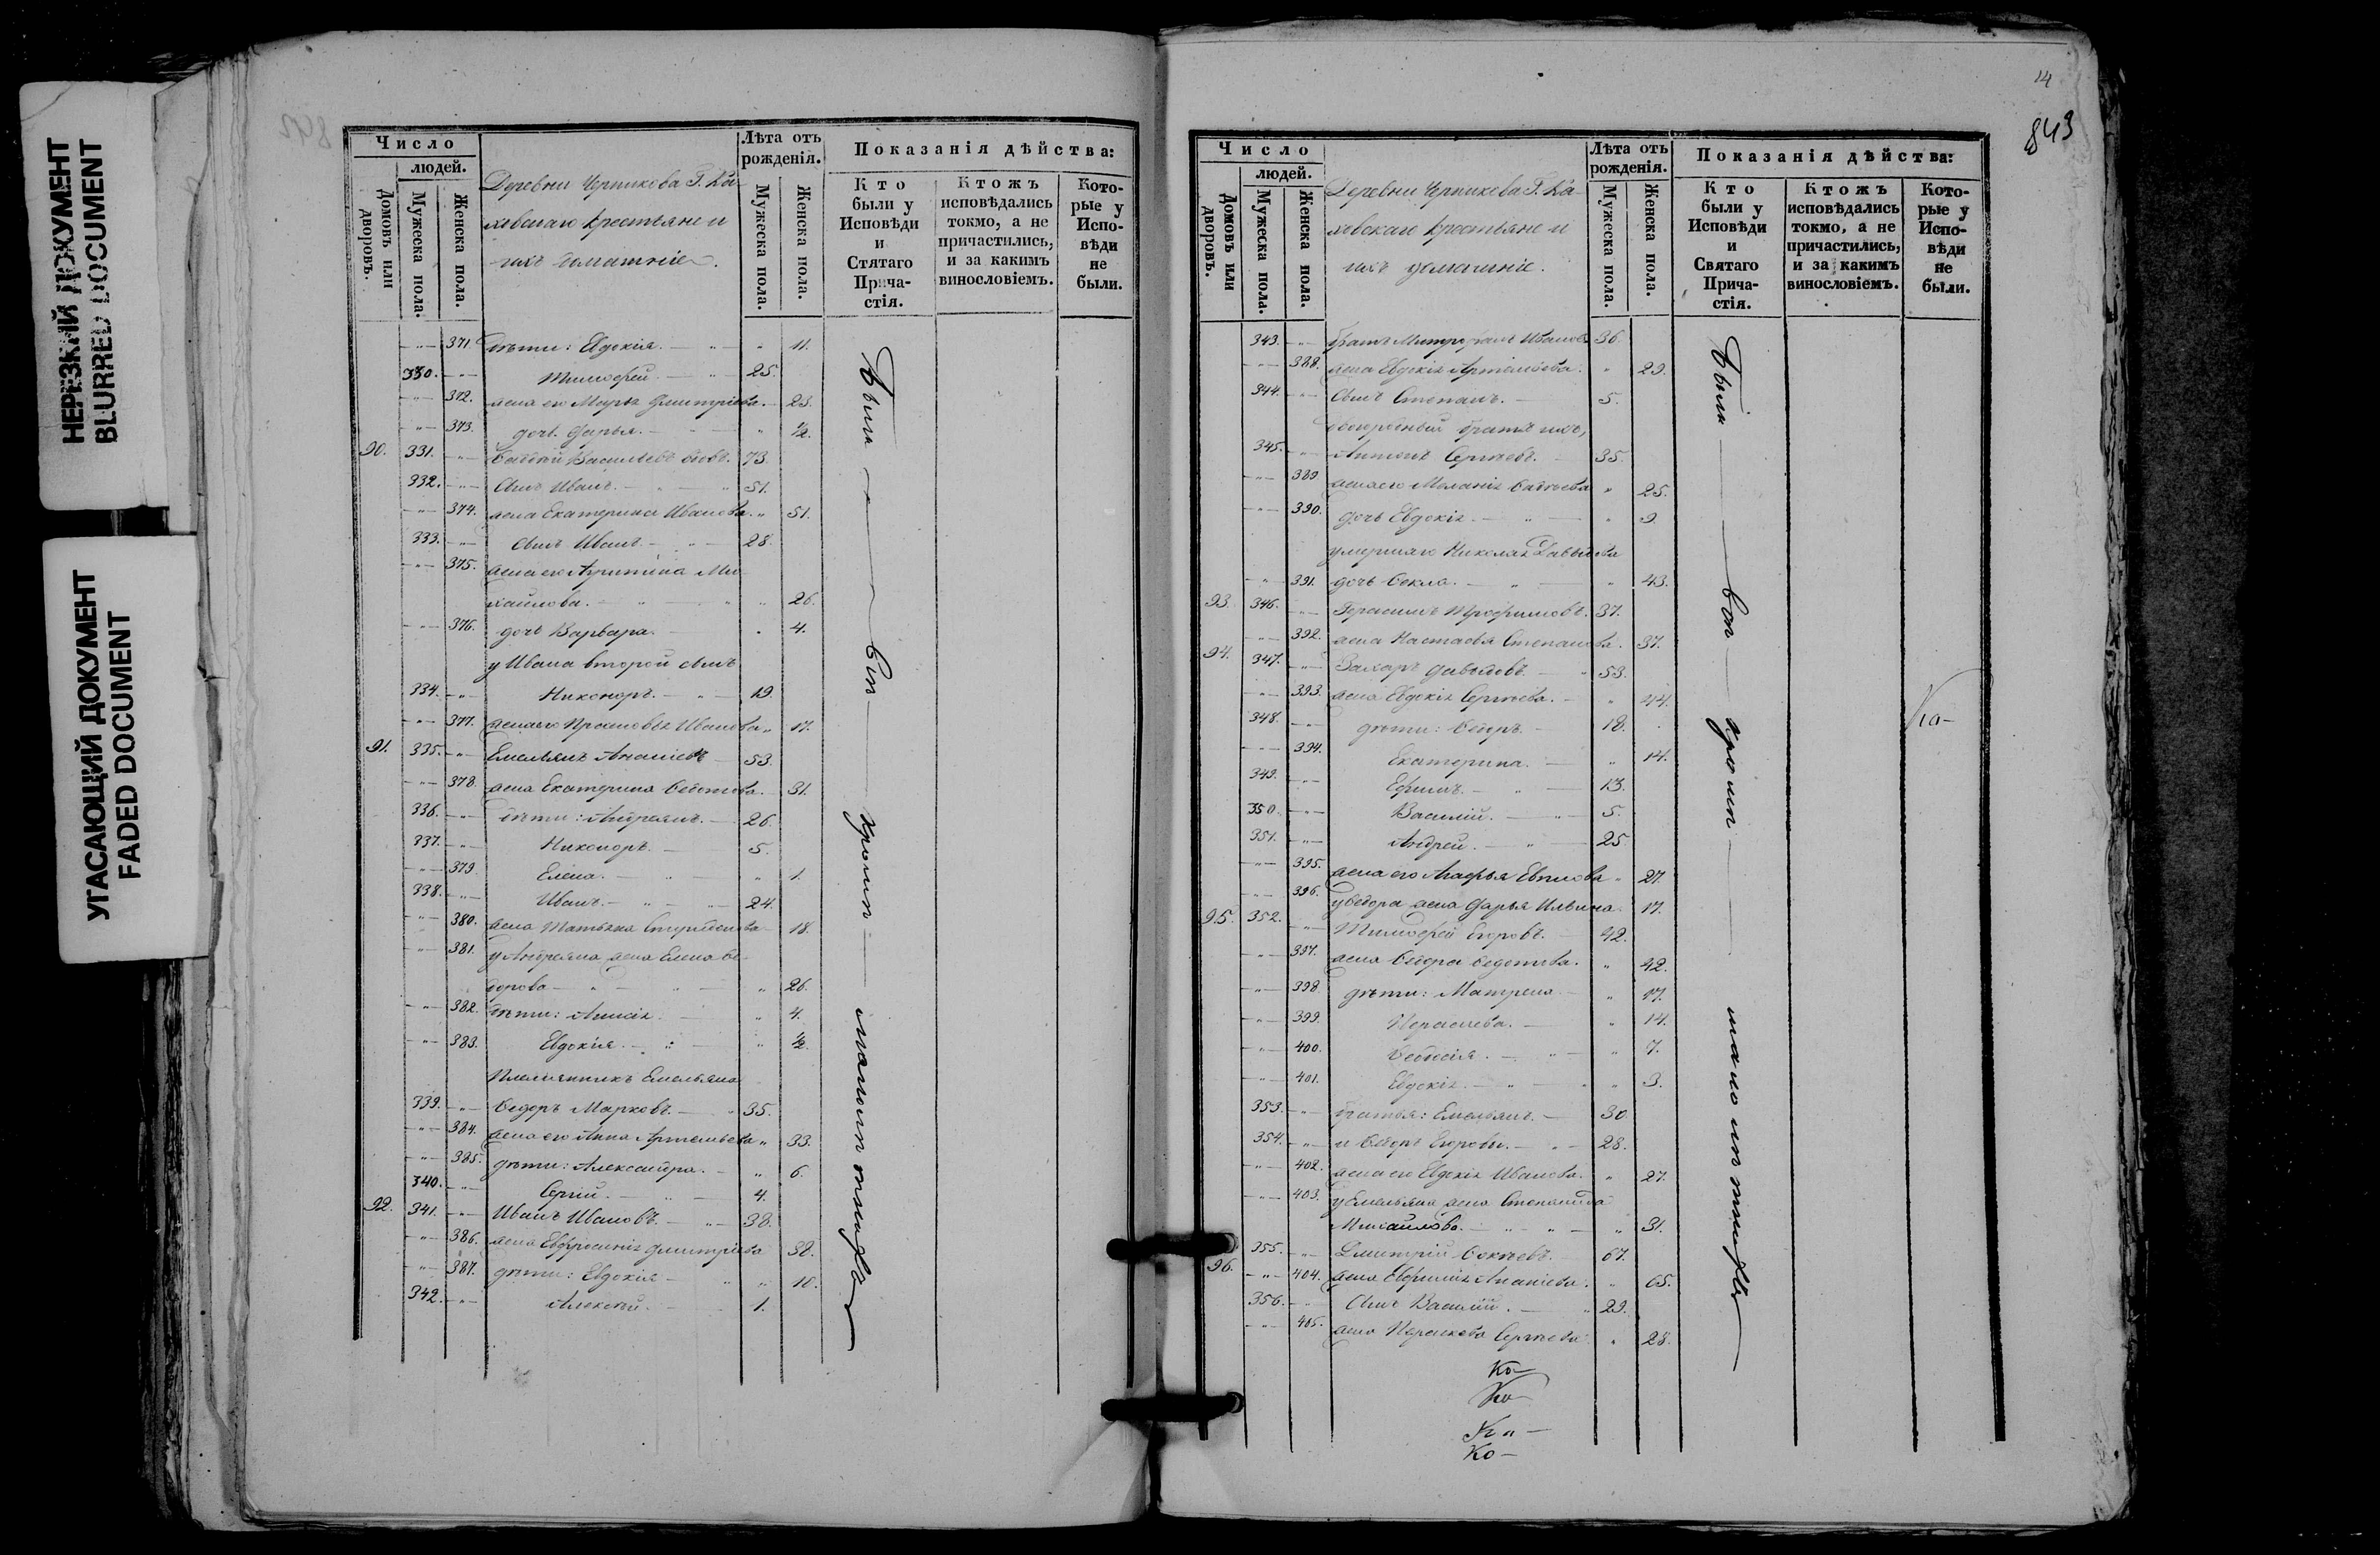 НЕРЕЗКИЙ ДОКУМЕНТ
BLURRED DOCUMENT
УГАСАЮЩИЙ ДОКУМЕНТ
FADED DOCUMENT
Число
людей.
Домовъ или дворовъ.
Мужеска пола.
Женска пола.
Деревни Черникова Г. Ка-
ховскаго крестьяне и
ихъ домашніе.
Лѣта отъ рожденія.
Мужеска пола.
Женска пола.
Показанія дѣйства:
Кто были у Исповѣди и Стятаго Прича-стія.
Ктожъ исповѣдались токмо, а не причастились, и за какимъ винословіемъ.
Кото-рые у Испо-вѣди не были.
371. дѣти: Евдокія. 11.
330. Тимофей. 25.
372. жена его Марья Дмитріева. 23.
373. дочь Дарья. ½.
90. 331. Васильевъ вдовъ. 73.
332. Сынъ Иванъ. 51.
374. жена Екатерина Иванова. 51.
333. Сынъ Иванъ 28.
375. жена его Агрипина Ми-
хайлова. 26.
376. дочь Варвара. 4.
у Ивана второй сынъ
334. Никоноръ. 19.
377. жена его Прасковья Иванова 17.
91. 335. Емельянъ Ананіевъ 53.
378. жена Екатерина Федотова. 31.
336. дѣти: Андреянъ. 26.
337. Никоноръ. 5.
379. Елена. 1.
338. Иванъ. 24.
380. жена Татьяна Спиридонова 18.
381. у Андреяна жена Елена Ѳе-
дорова 26.
382. дѣти: Анисія. 4.
383. Евдокія. ½.
Племянникъ Емельяна
339. Ѳедоръ Марковъ. 35.
384. жена его Анна Артемьева 33.
385. дѣти: Александра. 6.
340. Сергій. 4.
92. 341. Иванъ Ивановъ. 38.
386. жена Евфросинія Дмитріева 38.
387. дѣти: Евдокія 10.
342. Алексѣй. 1.
Были вси кромѣ малолѣтнихъ
14
843
Число
людей.
Домовъ или дворовъ.
Мужеска пола.
Женска пола.
Деревни Черникова Г. Ка-
ховскаго крестьяне и
ихъ домашніе.
Лѣта отъ рожденія.
Мужеска пола.
Женска пола.
Показанія дѣйства:
Кто были у Исповѣди и Святаго Прича-стія.
Ктожъ исповѣдались токмо, а не причастились, и за какимъ винословіемъ.
Кото-рые у Испо-вѣди не были.
343. братъ Митрофанъ Ивановъ 36.
388. жена Евдокія Артемьева. 29.
344. Сынъ Степанъ. 5.
двоюродный братъ ихъ,
345. Антонъ Сергѣевъ. 35.
389. жена его Меланія 25.
390. дочь Евдокія. 9.
умершаго Николая Давыдова
391. дочь Ѳекла. 43.
93. 346. Герасимъ Трофимовъ. 37.
392. жена Настасья Степанова. 37.
94. 347. Захаръ Давыдовъ. 53.
393. жена Евдокія Сергѣева. 44.
348. дѣти: Ѳедоръ. 18.
394. Екатерина. 14.
349. Ефимъ. 13.
350. Василій. 5.
351. Андрей. 25.
395. жена его Агафья 27.
396. у Ѳедора жена Дарья Ильина. 17.
95. 352. Тимофей Егоровъ. 42.
397. жена Федотова. 42.
398. дѣти: Матрена 17.
399. Параскева. 14.
400. Ѳедосія. 7.
401. Евдокія. 3.
353. братья: Емельянъ. 30
354. и Ѳедоръ Егоровы. 28.
402. жена его Евдокія Иванова. 27.
403. у Емельяна жена Степанида
Михайлова. 31.
96. 355. Дмитрій 67.
404. жена Евфимія Ананіева. 65.
356. Сынъ Василій. 29.
405. жена Параскева Сергѣева 28.
Были вси кромѣ малолѣтнихъ
Ко-
Ко-
Ко-
Ко-